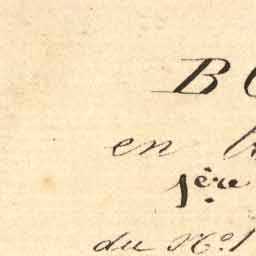 B
en
1ère
du No. 1